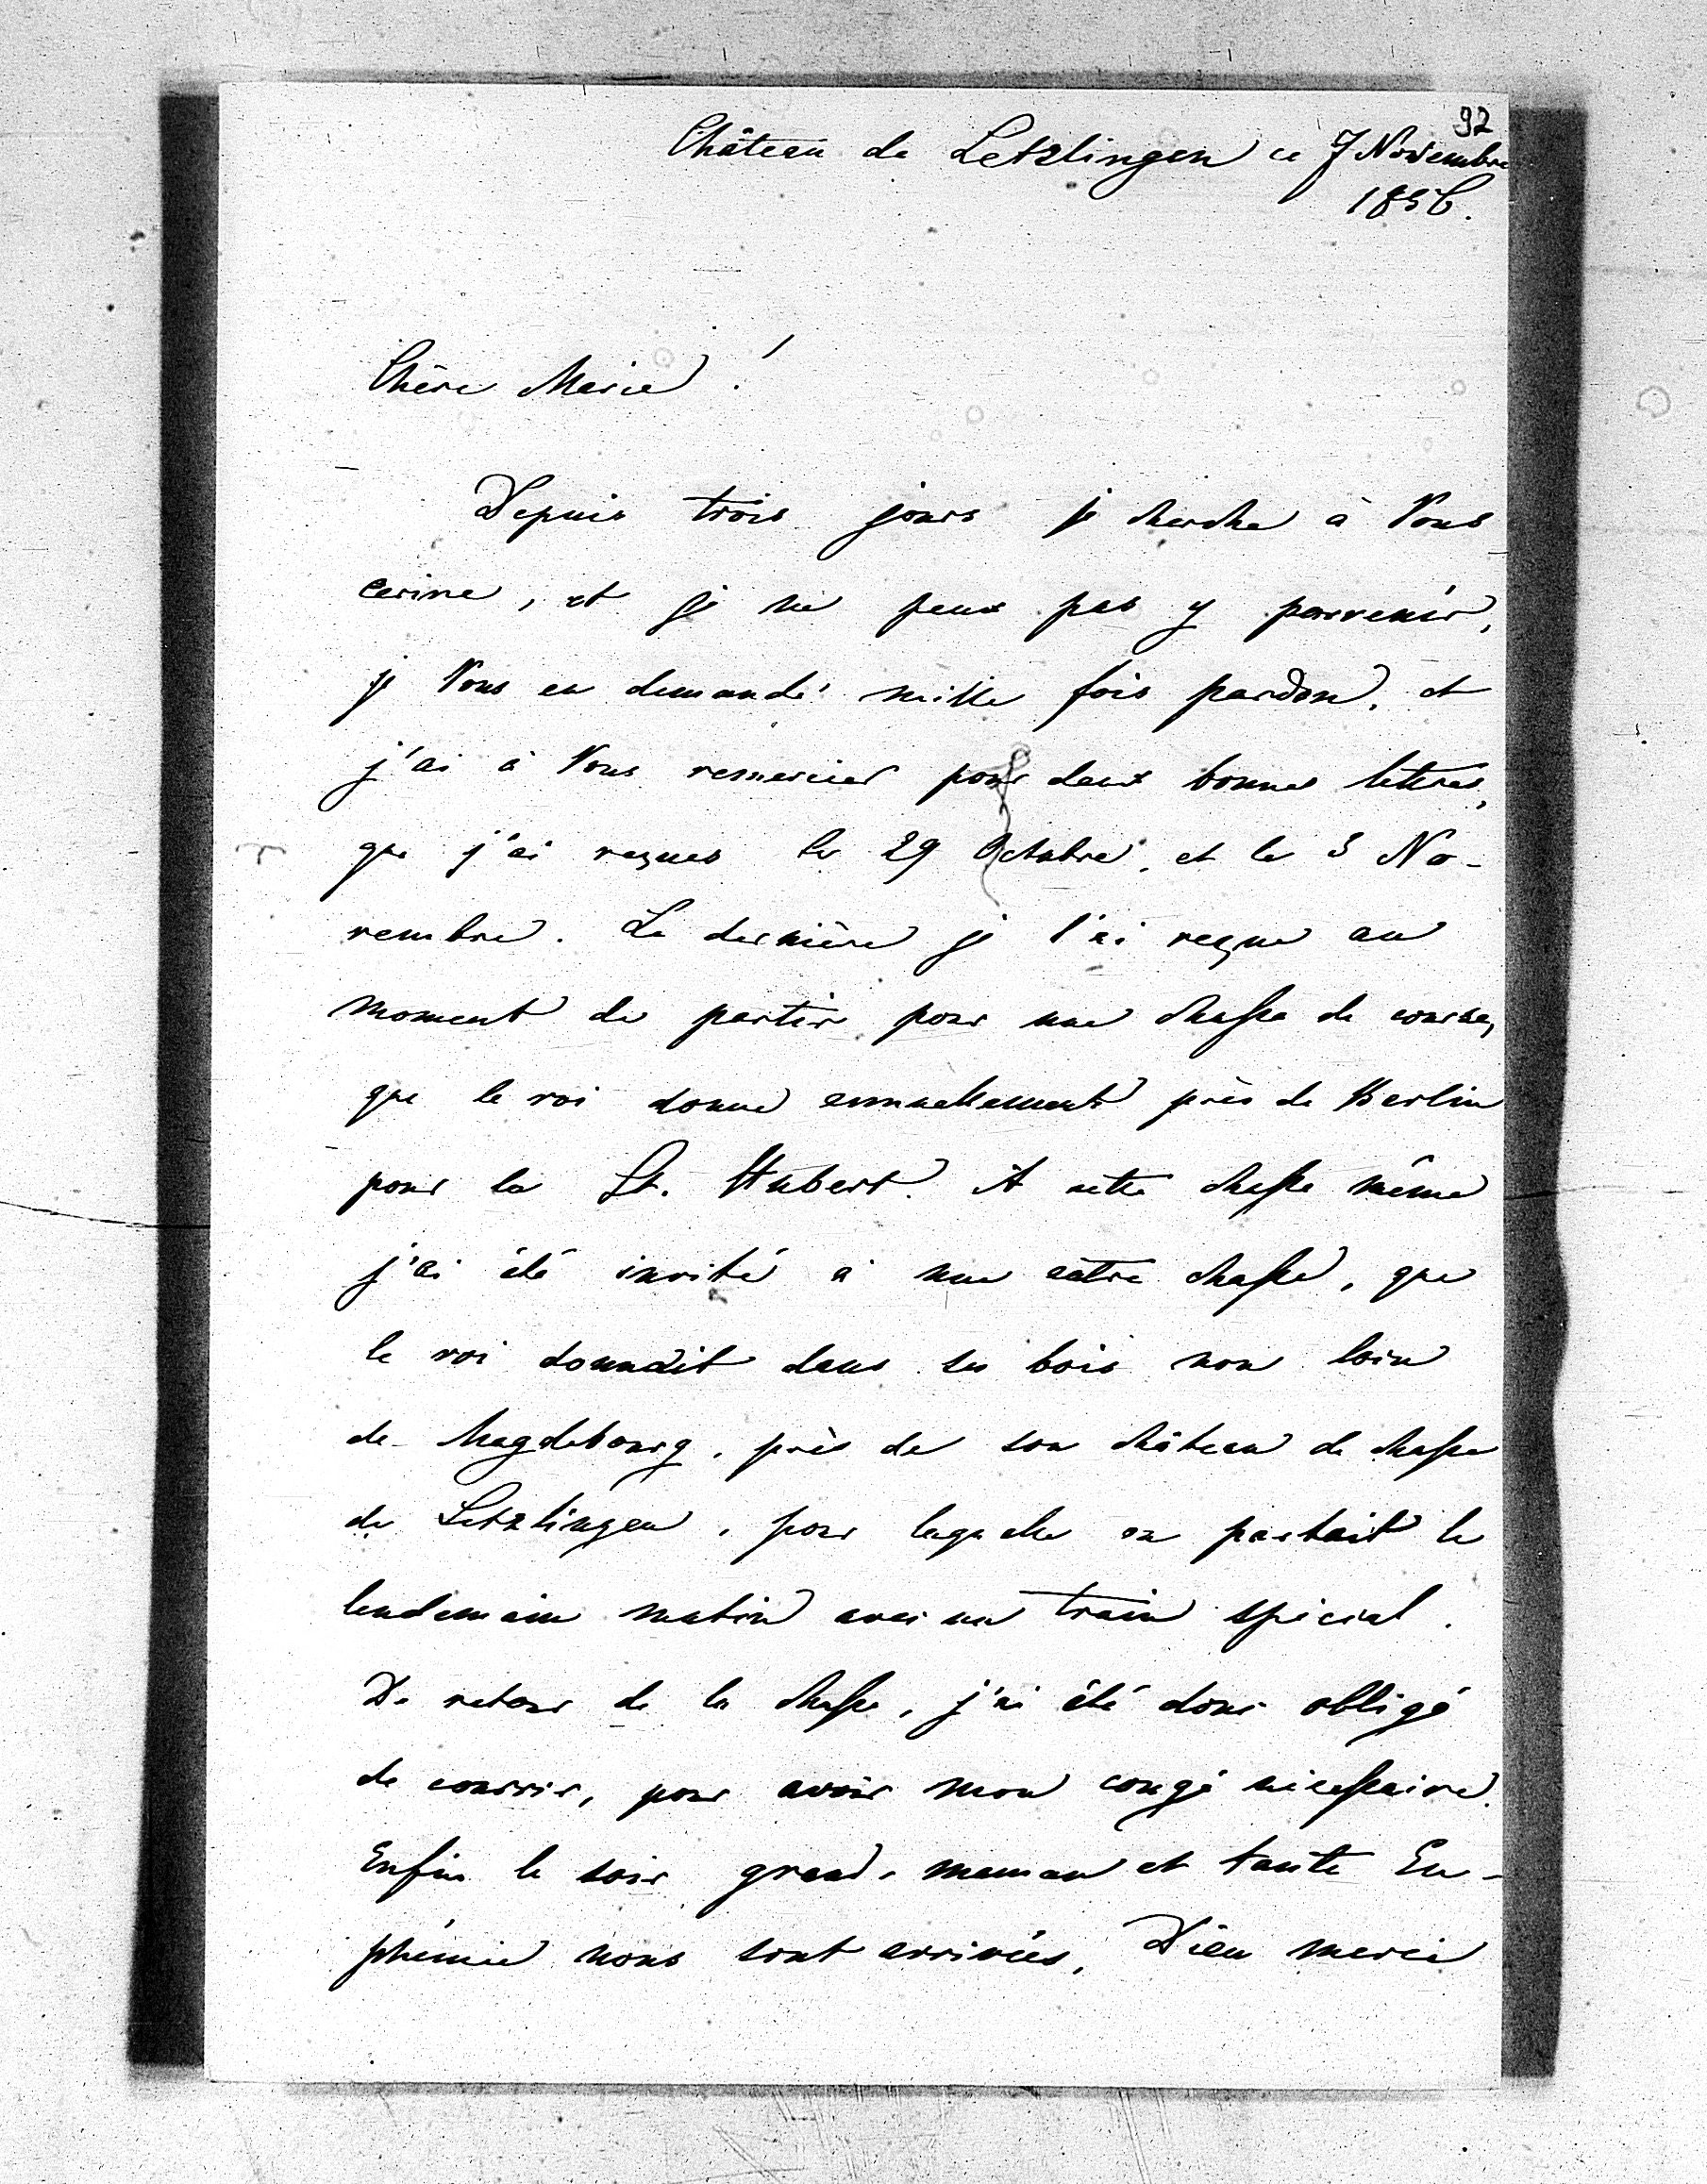 92
Château de Letzlingen ce 7 Novembre
1856.
Chère Marie!
Depuis trois jours je cherche à Vous
ecrire, et je ne peux pas y parvenir,
je Vous en demande mille fois pardon, et
j'ai à Vous remercier pour deux bonnes lettres,
que j'ai reçues le 29 Octobre, et le 3 No-
vembre. La dernière je l'ai reçue au
moment de partir pour une chasse de course,
que le roi donne annuellement près de Berlin
pour la St. Hubert. A cette chasse même
j'ai été invité à une autre chasse, que
le roi donnait dans ses bois non loin
de Magdebourg, près de son château de chasse
de Letzlingen, pour laquelle on partait le
lendemain matin avec un train spécial.
De retour de la chasse, j'ai été donc obligé
de courrir, pour avoir mon congé nécessaire.
Enfin le soir grand-maman et tante Eu-
phémie nous sont arrivées, Dieu merci